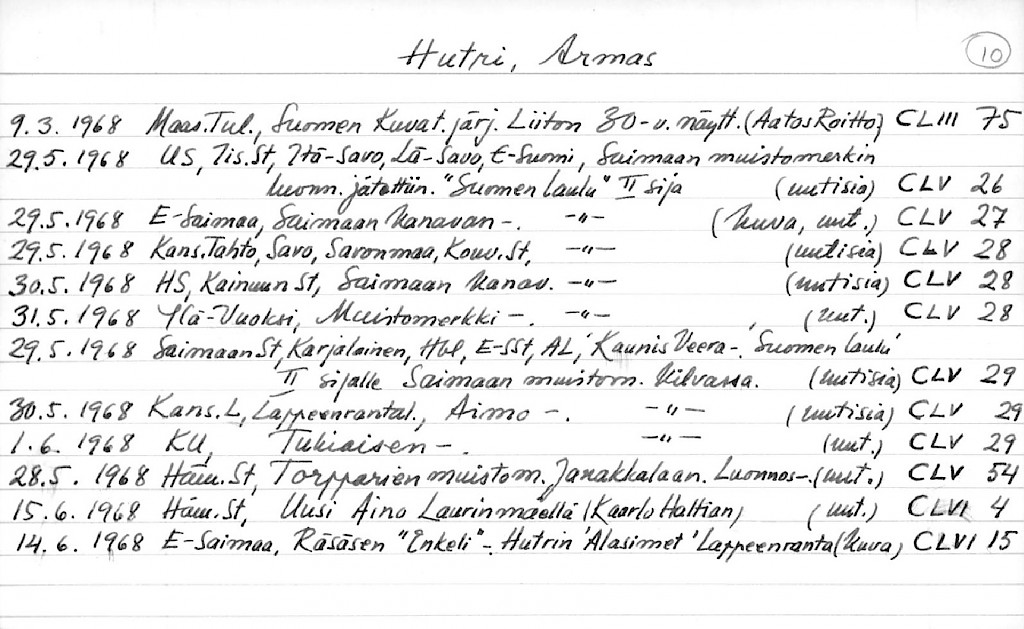 Hutri, Armas 10
9.3.1968 Maas.Tul., Suomen Kuvat.järj. Liiton 30-v. näytt. (Aatos Roitto) CLIII 75
29.5.1968 US, Iis.St, Itä-Savo, Lä-Savo, E-Suomi, Saimaan muistomerkin
luonn. jätettiin. "Suomen laulu" II sija (uutisia) CLV 26
29.5.1968 E-Saimaa, Saimaan kanavan -. -"- (kuva, uut.) CLV 27
29.5.1968 Kans.Tahto, Savo, Savonmaa, Kouv.St, -"- (uutisia) CLV 28
30.5.1968 HS, Kainuun St, Saimaan kanav. -"- (uutisia) CLV 28
31.5.1968 Ylä-Vuoksi, Muistomerkki -. -"- (uut.) CLV 28
29.5.1968 Saimaan St, Karjalainen, Hbl, E-SSt, AL, 'Kaunis Veera -. 'Suomen laulu'
II sijalle Saimaan muistom. kilvassa. (uutisia) CLV 29
30.5.1968 Kans.L, Lappeenrantal., Aimo -. -"- (uutisia) CLV 29
1.6.1968 KU, Tukiaisen -. -"- (uut.) CLV 29
28.5.1968 Häm.St, Torpparien muistom. Janakkalaan. Luonnos -. (uut.) CLV 54
15.6.1968 Häm.St, Uusi Aino Laurinmäellä (Kaarlo Haltian) (uut.) CLVI 4
14.6.1968 E-Saimaa, Räsäsen "Enkeli" -. Hutrin 'Alasimet' Lappeenranta (kuva) CLVI 15